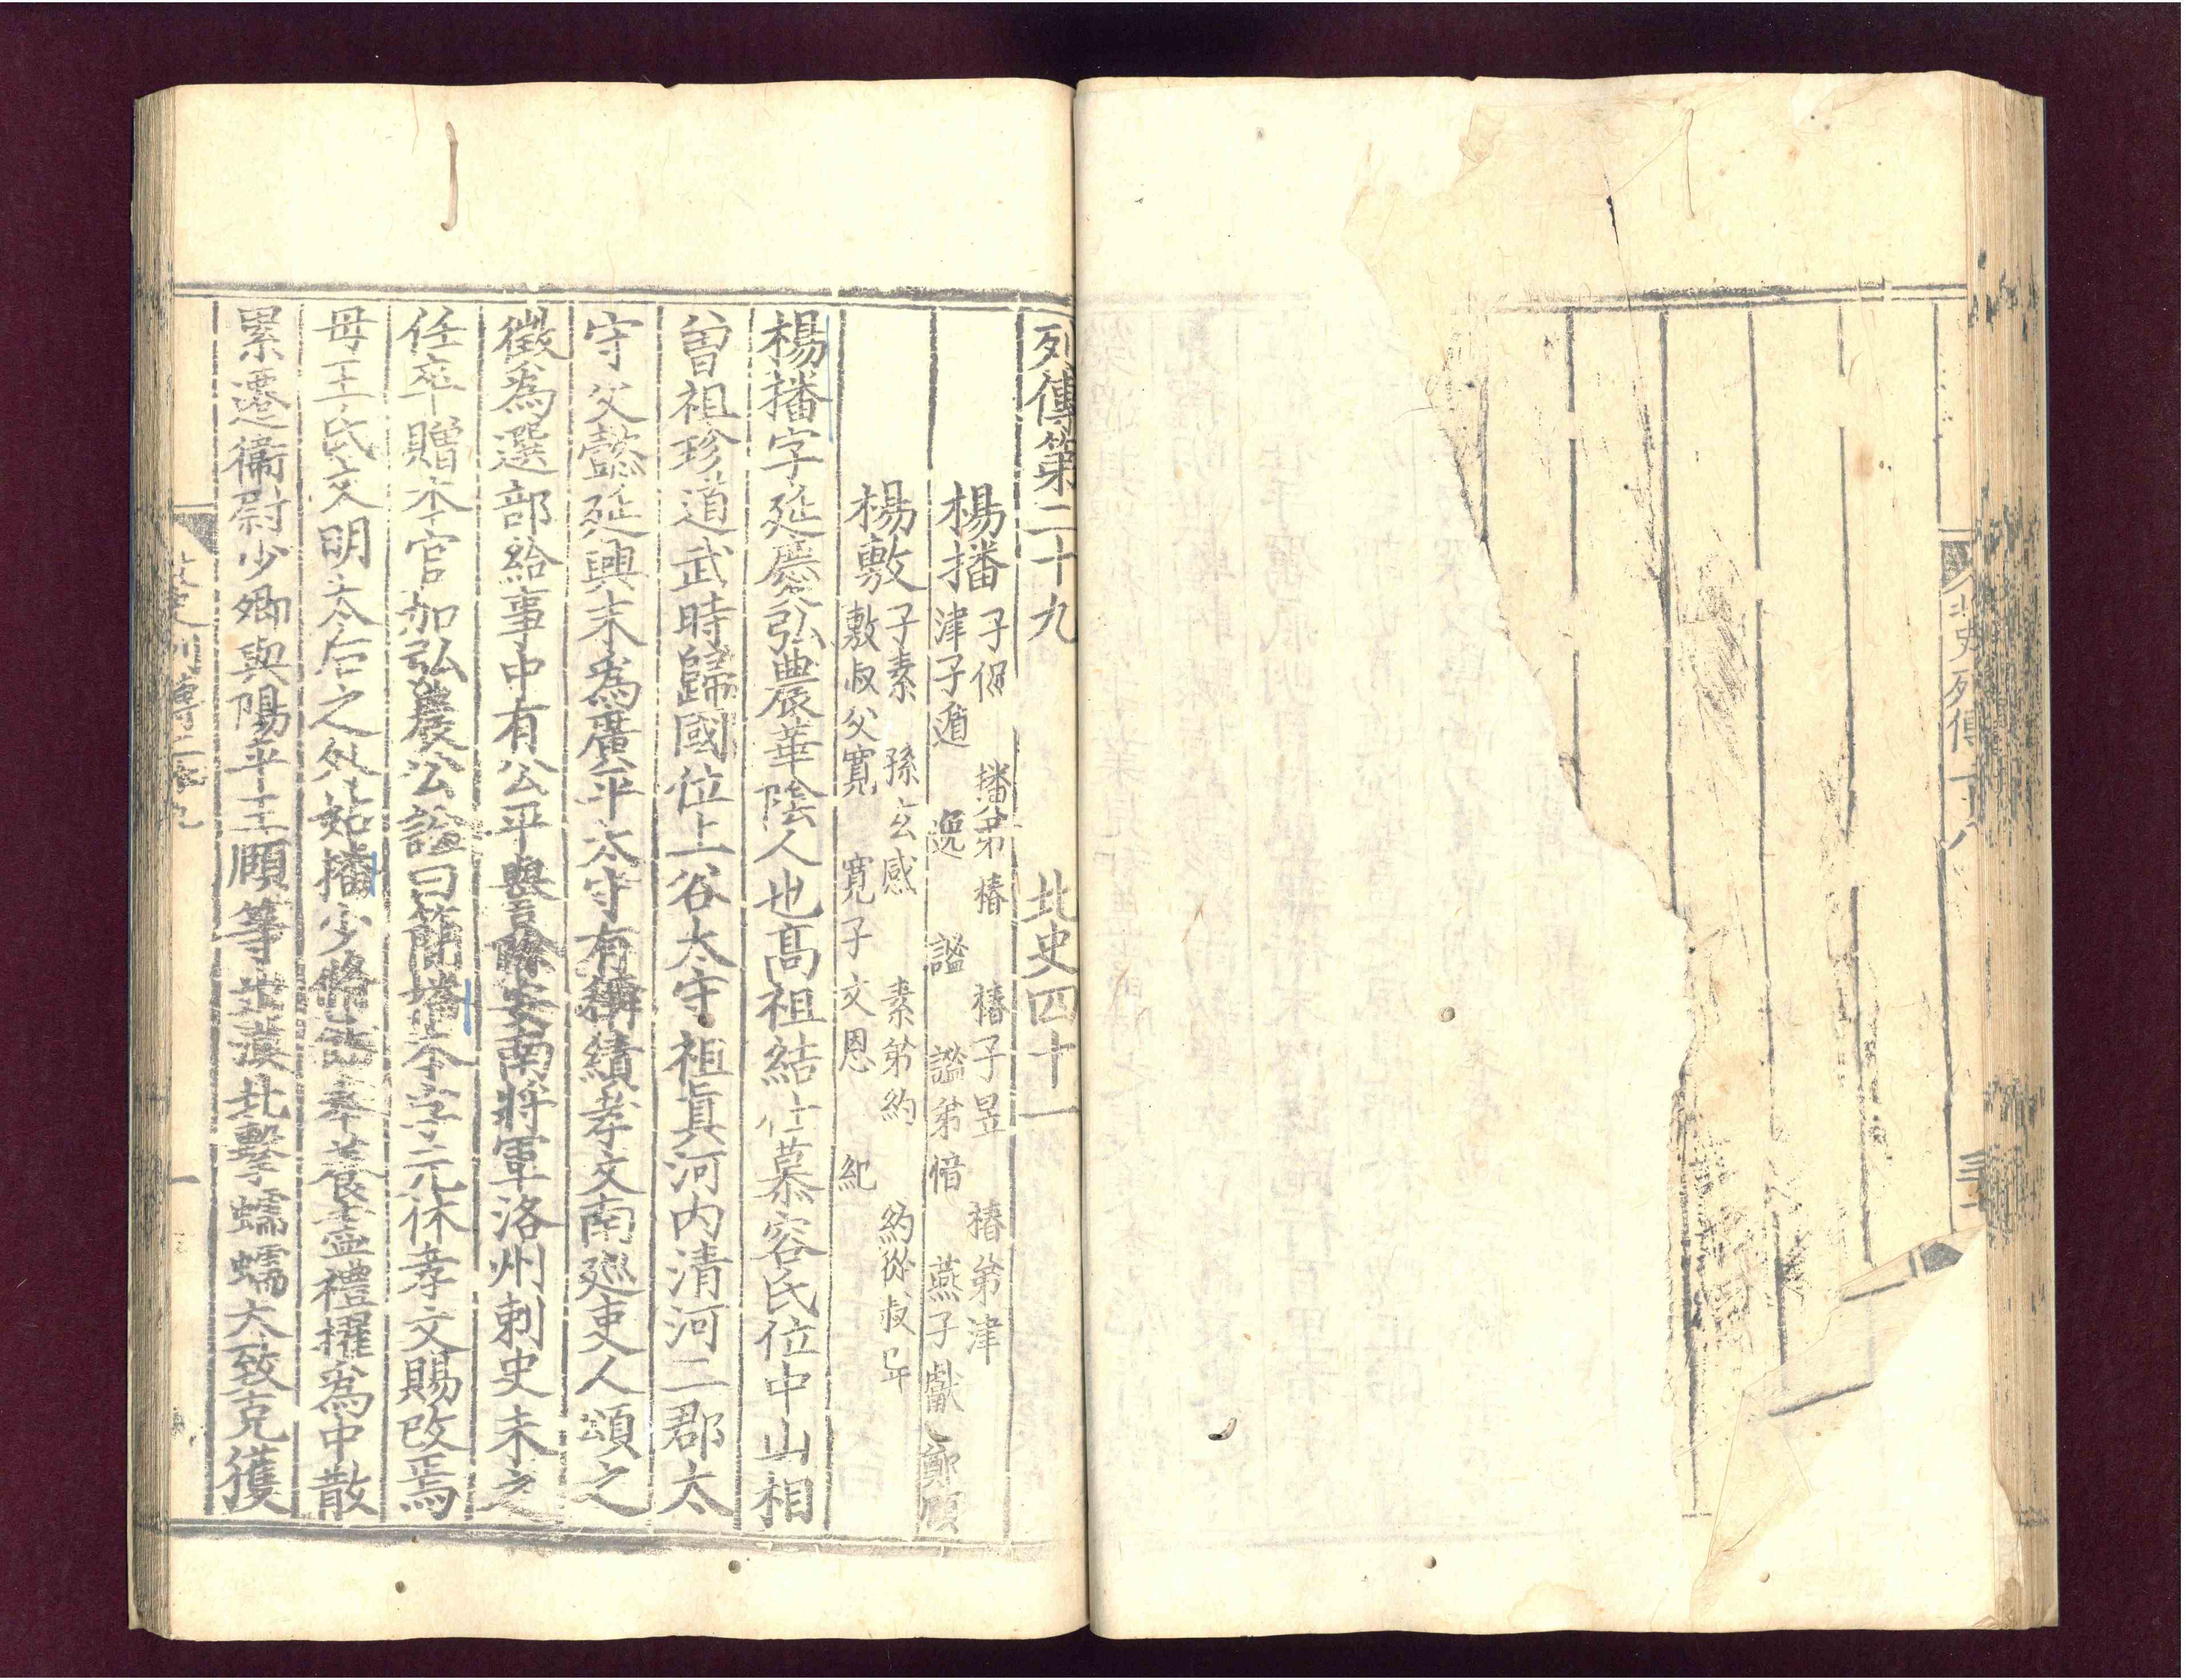 北史列傳二十八
列傳第二十九 北史四十一
楊播 子侃 播弟椿 椿子昱 椿弟津
津子遁 逸 謐 謐弟愔 燕子獻 鄭頤
楊敷 子素 孫玄感 素弟約 約從叔异
敷叔父寬 寬子文恩 紀
楊播字延慶弘農華陰人也高祖結仕慕容氏位中山相
曾祖珍道武時歸國位上谷太守祖眞河内清河二郡太
守父懿延興末爲廣平太守有稱績孝文南廵吏人頌之
徵爲選部給事中有公平譽除安南將軍洛州刺史未之
任卒贈本官加弘農公諡曰簡播本字元休孝文賜改焉
母王氏文明太后之外姑播少脩飭奉養盡禮擢爲中散
累遷衞尉少卿與陽平王頤等出漠北擊蠕蠕大致克獲
北史列傳二十九 一